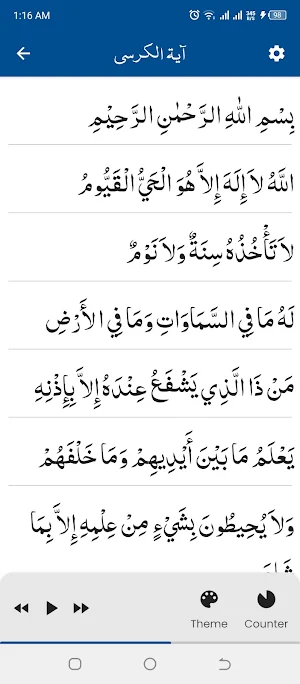 1:16 AM
245 B/S
98
آية الكرسى
بِسْمِ اللهِ الرَّحْمٰنِ الرَّحِيْمِ
اللَّهُ لاَ إِلَهَ إِلاَّ هُوَ الْحَيُّ الْقَيُّومُ
لاَ تَأْخُذُهُ سِنَةٌ وَلاَ نَوْمٌ
لَهُ مَا فِي السَّمَاوَاتِ وَمَا فِي الأَرْضِ
مَنْ ذَا الَّذِي يَشْفَعُ عِنْدَهُ إِلاَّ بِإِذْنِهِ
يَعْلَمُ مَا بَيْنَ أَيْدِيهِمْ وَمَا خَلْفَهُمْ
وَلاَ يُحِيطُونَ بِشَيْءٍ مِنْ عِلْمِهِ إِلاَّ بِمَا
Theme Counter